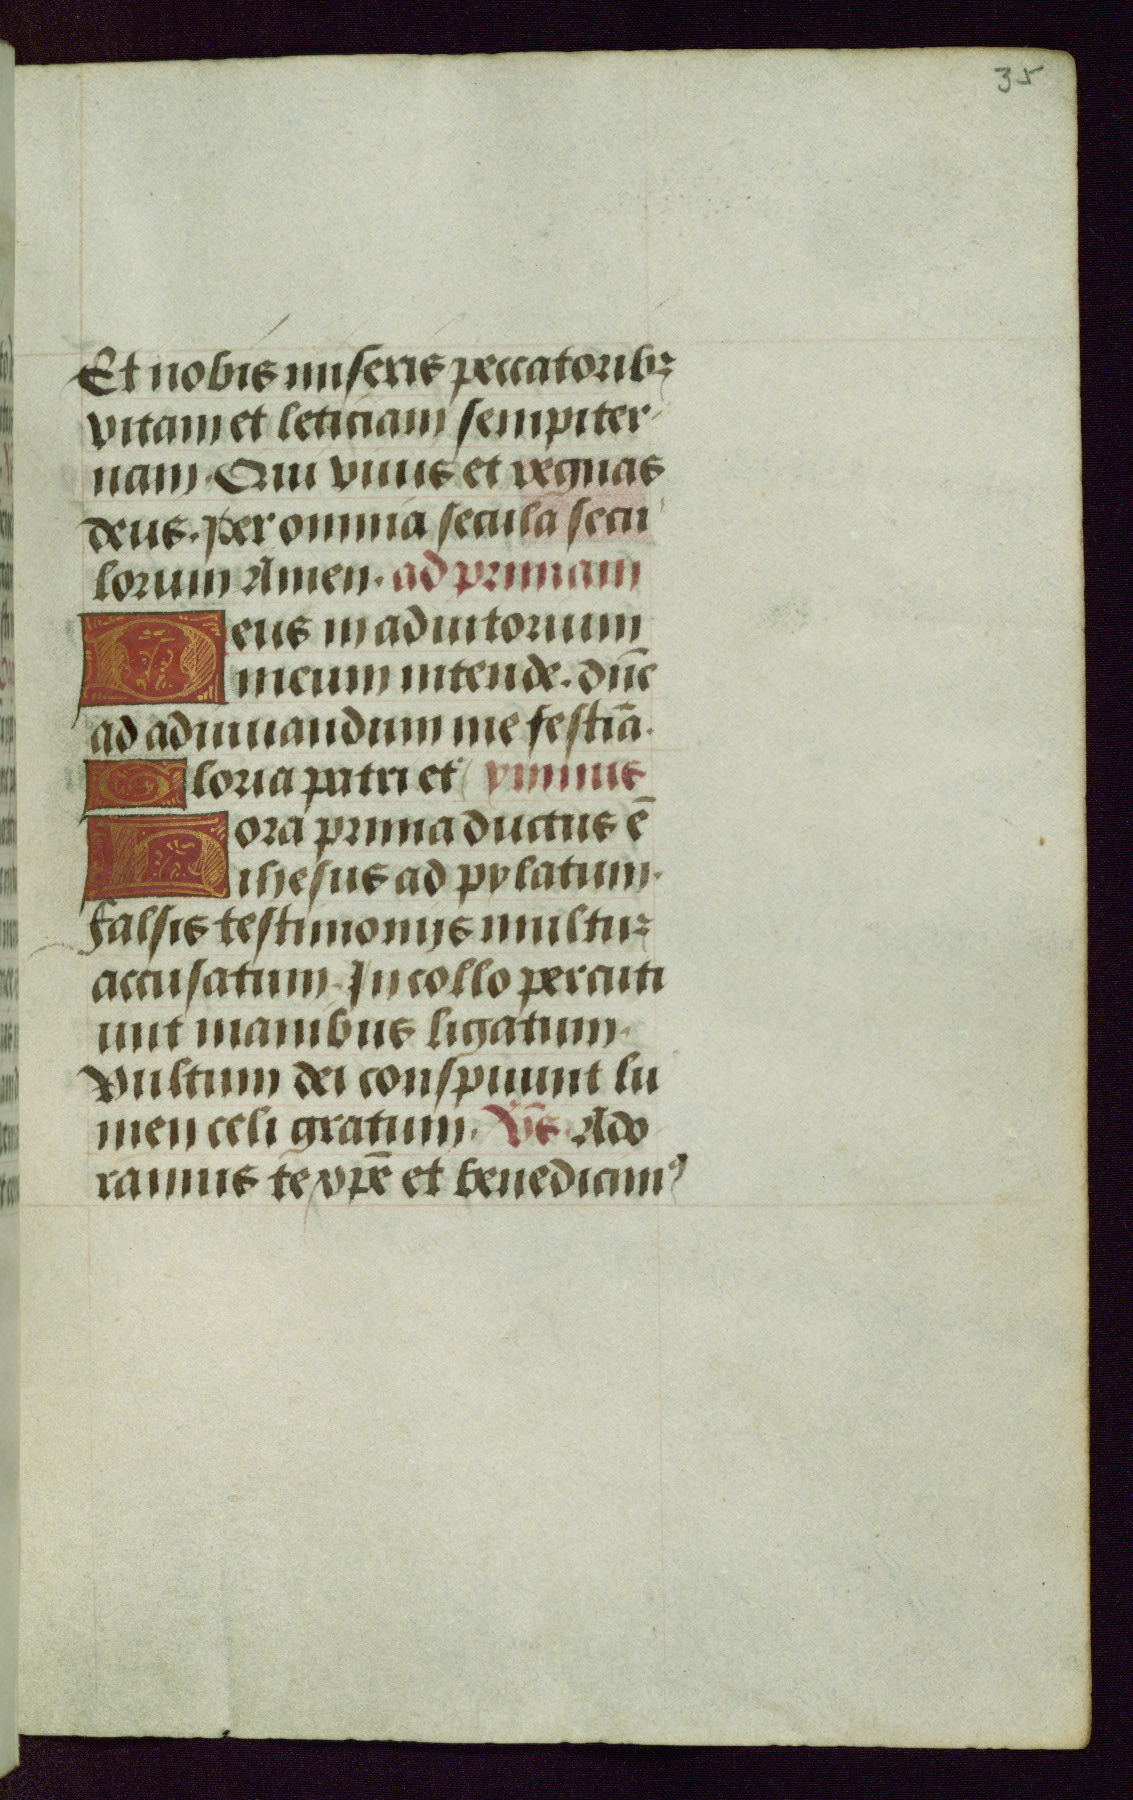 35
Et nobis miseris peccatoribꝫ
vitam et leticiam sempiter
nam. Qui viuis et regnas
deus. Per omnia secula secu
lorum Amen. ad primam
Deus in adiutorium
meum intende. dn̄e
ad adiuuandum me festiā.
Gloria patri et ymnus
Hora prima ductus ē
ihesus ad pylatum.
falsis testimonijs multuꝫ
accusatum. In collo percuti
unt manibus ligatum.
Vultum dei conspuunt lu
men celi gratum. Vs̄. Ado
ramus te xp̄e et benedicimꝰ